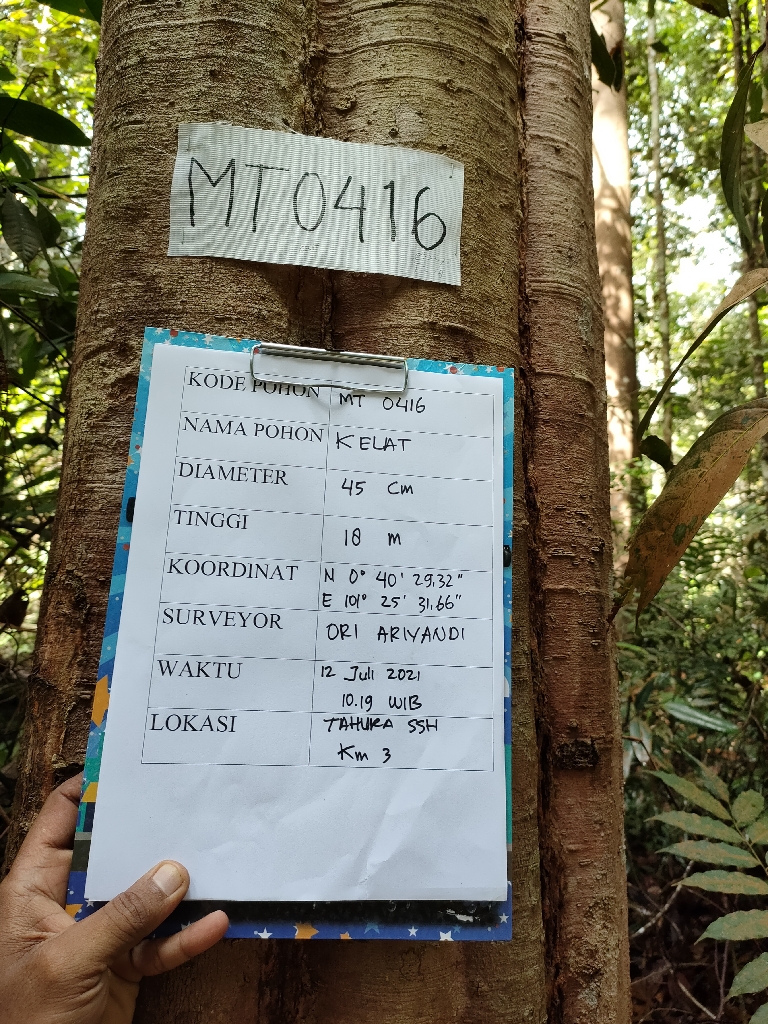 MT0416
KODE POHON MT 0416
NAMA POHON KELAT
DIAMETER 45 Cm
TINGGI 18 m
KOORDINAT N 0° 40' 29,32"
E 101° 25' 31,66"
SURVEYOR ORI ARIYANDI
WAKTU 12 Juli 2021
10.19 WIB
LOKASI TAHURA SSH
Km 3